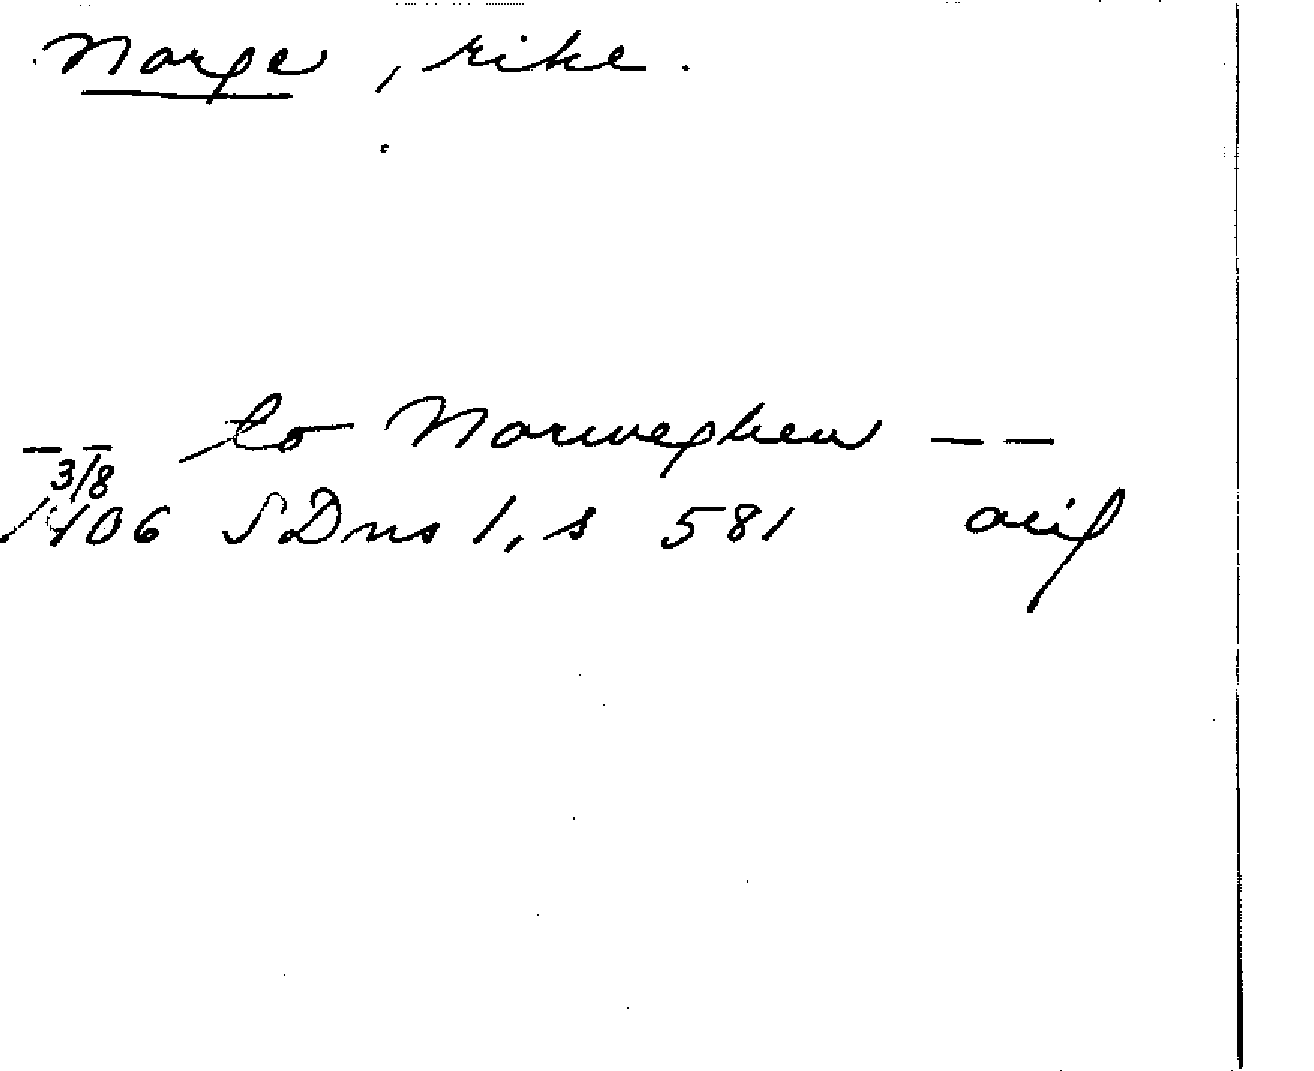 Norge, rike.
— — to Norweghen — —
3/8
1406 SDns 1, s 581 orig